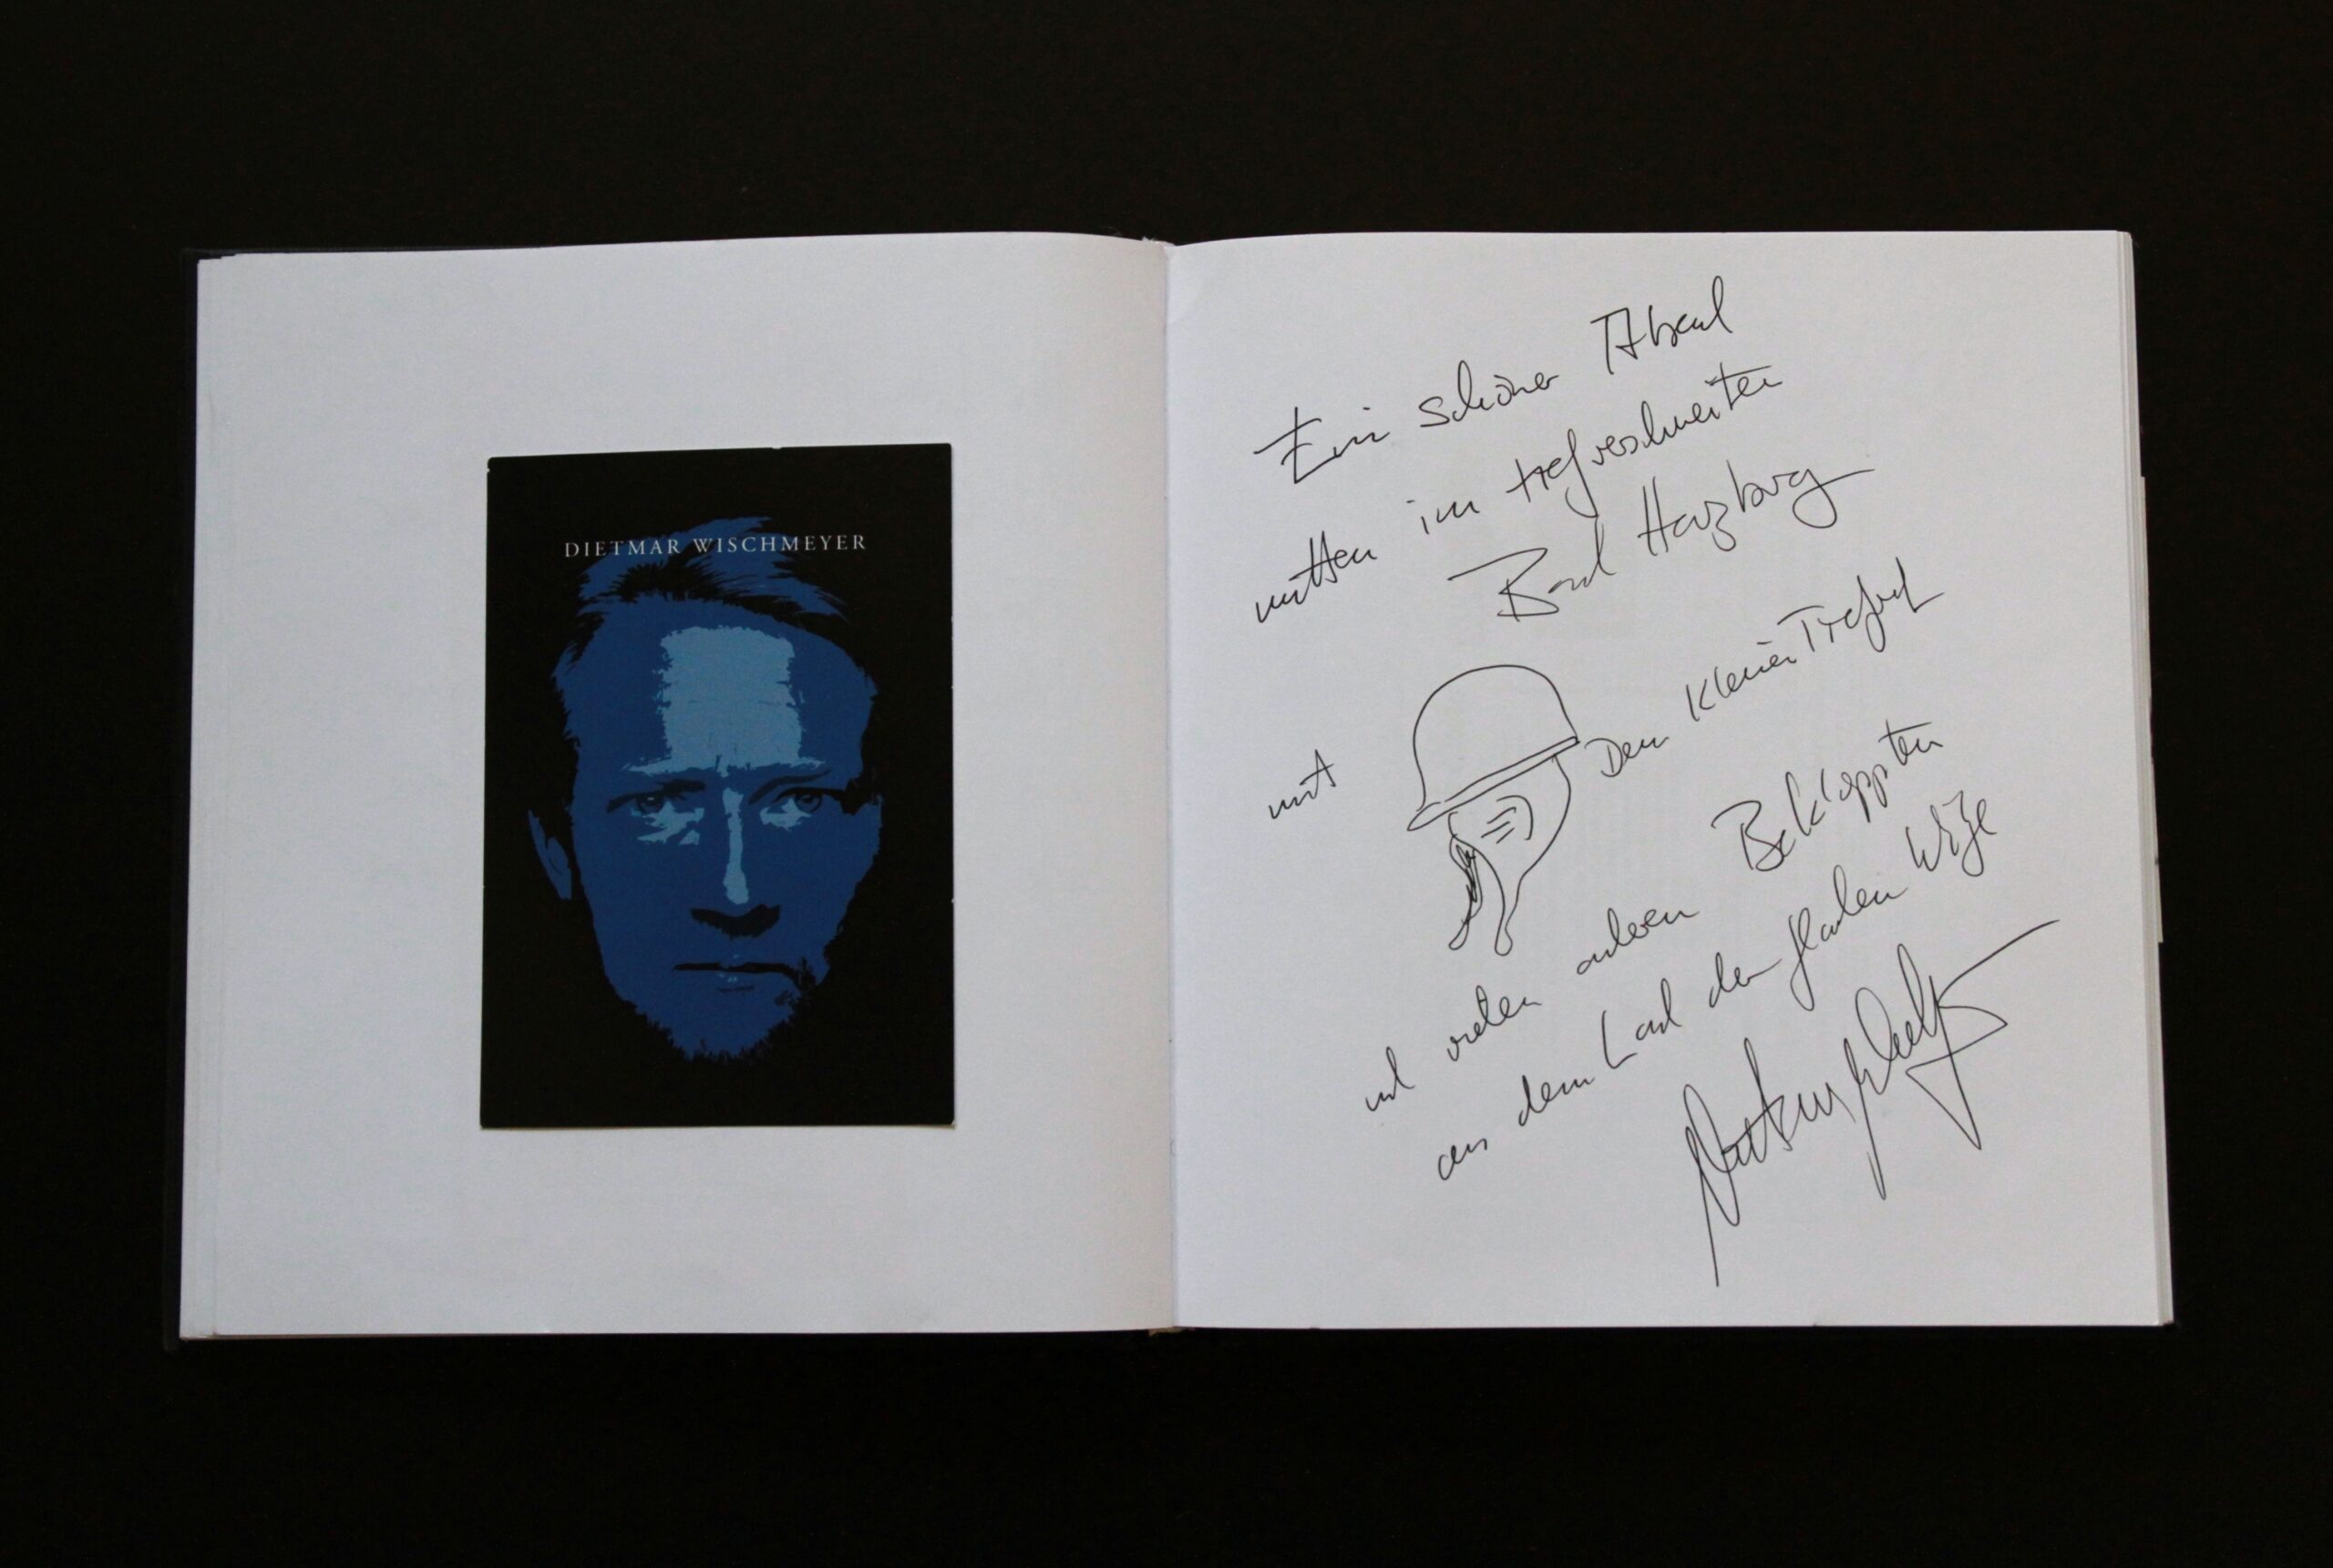 DIETMAR WISCHMEYER
Ein schöner Abend
mitten im tiefverschneiten
Bad Harzburg
mit Dem Kleinen Tierfreund
und vielen anderen Bekloppten
aus dem Land der flachen Witze